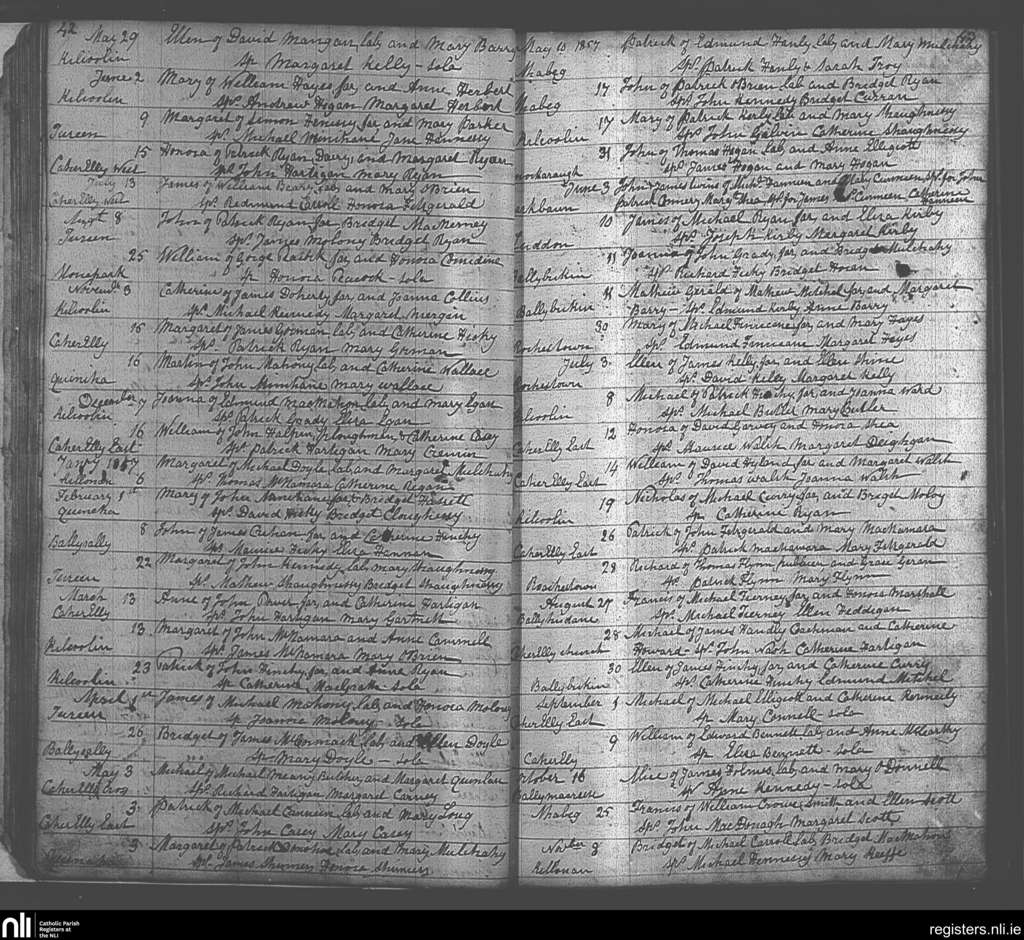 42
May 29 Ellen of David Mangan, lab, and Mary Barry
Kilcoolin Sp. Margaret Kelly - sola
June 2 Mary of William Hayes far and Anne Herbert
Kilcoolin Sps. Andrew Hogan Margaret Herbert
9 Margaret of Simon Henessy far and Mary Parker
Tureen Sps. Michael Minihane Jane Hennessy
15 Honora of Patrick Ryan Dairy, and Margaret Ryan
CaherElly West Sps. John Hartigan Mary Ryan
July 13 James of William Beary, lab, and Mary O'Brien
CaherElly West Sps. Redmund Carroll Honora Fitzgerald
Augst 8 John of Patrick Ryan far Bridget MacNerney
Tureen Sps. James Molony Bridget Ryan
25 William of Gorge far, and Honora Considine
Sp Honora Peacock - sola
Novem 3 Catherine of James Doherty, far, and Joanna Collins
Kilcoolin Sps. Michael Kennedy Margaret
15 Margaret of James Gorman lab, and Catherine Hicky
CaherElly Sps. Patrick Ryan Mary Gorman
16 Martin of John Mahony, lab, and Catherine Wallace
Sps. John Minihane Mary Wallace
December 7 Joanna of Edmund MacMahon, lab, and Mary Egan
Kilcoolin Sps. Patrick Grady Eliza Egan
16 William of John Halpin, Ploughman & Catherine
CaherElly East Sps. Patrick Hartigan Mary
Jany 1857 Margaret of Michael Doyle, lab, and Margaret Mulchahy
6 Sps. Thomas McNamara Catherine Regan
February 1st Mary of John Minihane far, & Bridget
Sps. David Hicky Bridget Cloughessy
8 John of James far and Catherine Finchy
Ballysally Sps. Maurice Eliza Hannan
22 Margaret of John Kennedy, lab, Mary Shaughnessy
Tureen Sps. Mathew Shaughnessy Bridget Shaughnessy
March 13 Anne of John Power, far, and Catherine Hartigan
CaherElly Sps. John Hartigan Mary Gartnett
13 Margaret of John McNamara and Anne Cammell
Kilcoolin Sps. James McNamara Mary O'Brien
23 Patrick of John Finchy, far, and Anne Ryan
Kilcoolin Sp. Catherine Maclgrath - sola
April 1st James of Michael Mahony, lab, and Honora Molony
Tureen Sp Joanna Molony - sola
26 Bridget of James McCormack, lab, and Ellen Doyle
Ballysally Sp Mary Doyle - sola
May 3 Michael of Michael Meany Butcher, and Margaret Quinlan
CaherElly Sps. Richard Hartigan Margaret Carney
3 Patrick of Michael Cunneen, lab, and Mary Long
CaherElly East Sps. John Casey Mary Casey
3 Margaret of Patrick Donohoe, lab, and Mary Mulchahy
Sps. James Honora
May 10 1857 Patrick of Edmund Hanly, lab, and Mary Mulchahy
Nhabeg Sps. Patrick Hanly & Sarah Troy
17 John of Patrick O'Brien lab and Bridget Ryan
Nhabeg Sps. John Kennedy Bridget Curran
17 Mary of Patrick lab, and Mary Shaughnessy
Kilcoolin Sps. John Galvin Catherine Shaughnessy
31 John of Thomas Hogan, lab, and Anne Elligott
Sps. James Hogan and Mary Hogan
June 3 John & James twins of Michl. Hanneen and Mary Cunneen, Sps. for John
Patrick Mary Shea Sps. for James Cunneen Catherine Hanneen
10 James of Michael Ryan, far, and Eliza Kirby
Luddon Sps. Joseph Kirby Margaret Kirby
11 Joanna of John Grady, far, and Bridget Mulchahy
Ballybrikin Sps. Richard Bridget Horan
11 Mathew Gerald of Mathew Mitchel, far, and Margaret
Ballybrikin Barry - Sps. Edmund Kirby Anne Barry
30 Mary of Michael Finucane, far, and Mary Hayes
Rochestown Sps. Edmund Finucane Margaret Hayes
July 3 Ellen of James Kelly, far, and Ellen Shine
Rochestown Sps. David Kelly Margaret Kelly
8 Michael of Patrick far, and Joanna Ward
Kilcoolin Sps. Michael Butler Mary Butler
12 Honora of David Garvey and Honora Shea
CaherElly East Sps. Maurice Walsh Margaret Deighgan
14 William of David Hyland, far, and Margaret Walsh
CaherElly East Sps. Thomas Walsh Joanna Walsh
19 Nicholas of Michael Curry, far, and Bridget Moloy
Kilcoolin Sp Catherine Ryan
26 Patrick of John Fitzgerald and Mary MacNamara
CaherElly East Sps. Patrick MacNamara Mary Fitzgerald
28 Richard of Thomas Flynn, publican and Grace Geran
Roachestown Sps. Patrick Flynn Mary Flynn
August 27 Francis of Michael Tierney, far, and Honora Marshall
Sps. Michael Tierney Ellen Heddigan
28 Michael of James Handly Coachman and Catherine
CaherElly Church Howard - Sps. John Nash Catherine Hartigan
30 Ellen of James Finchy, far, and Catherine Curry
Ballybrikin Sps. Catherine Finchy Edmund Mitchel
September 1 Michael of Michael Elligott and Catherine Kennedy
CaherElly East Sp Mary Connell sola
9 William of Edward Bennett, lab, and Anne McCarthy
CaherElly Sp. Eliza Bennett - sola
October 16 Alice of James Holmes, lab, and Mary O'Donnell
Sp Anne Kennedy - sola
Nhabeg 25 Francis of William Crowe, Smith and Ellen Scott
Sps. John MacDonagh Margaret Scott
Nov.ber 8 Bridget of Michael Carroll, lab, Bridget MacMahon
Killonan Sps. Michael Hennessy Mary Keeffe
nli Catholic Parish
Registers at
the NLI
registers.nli.ie